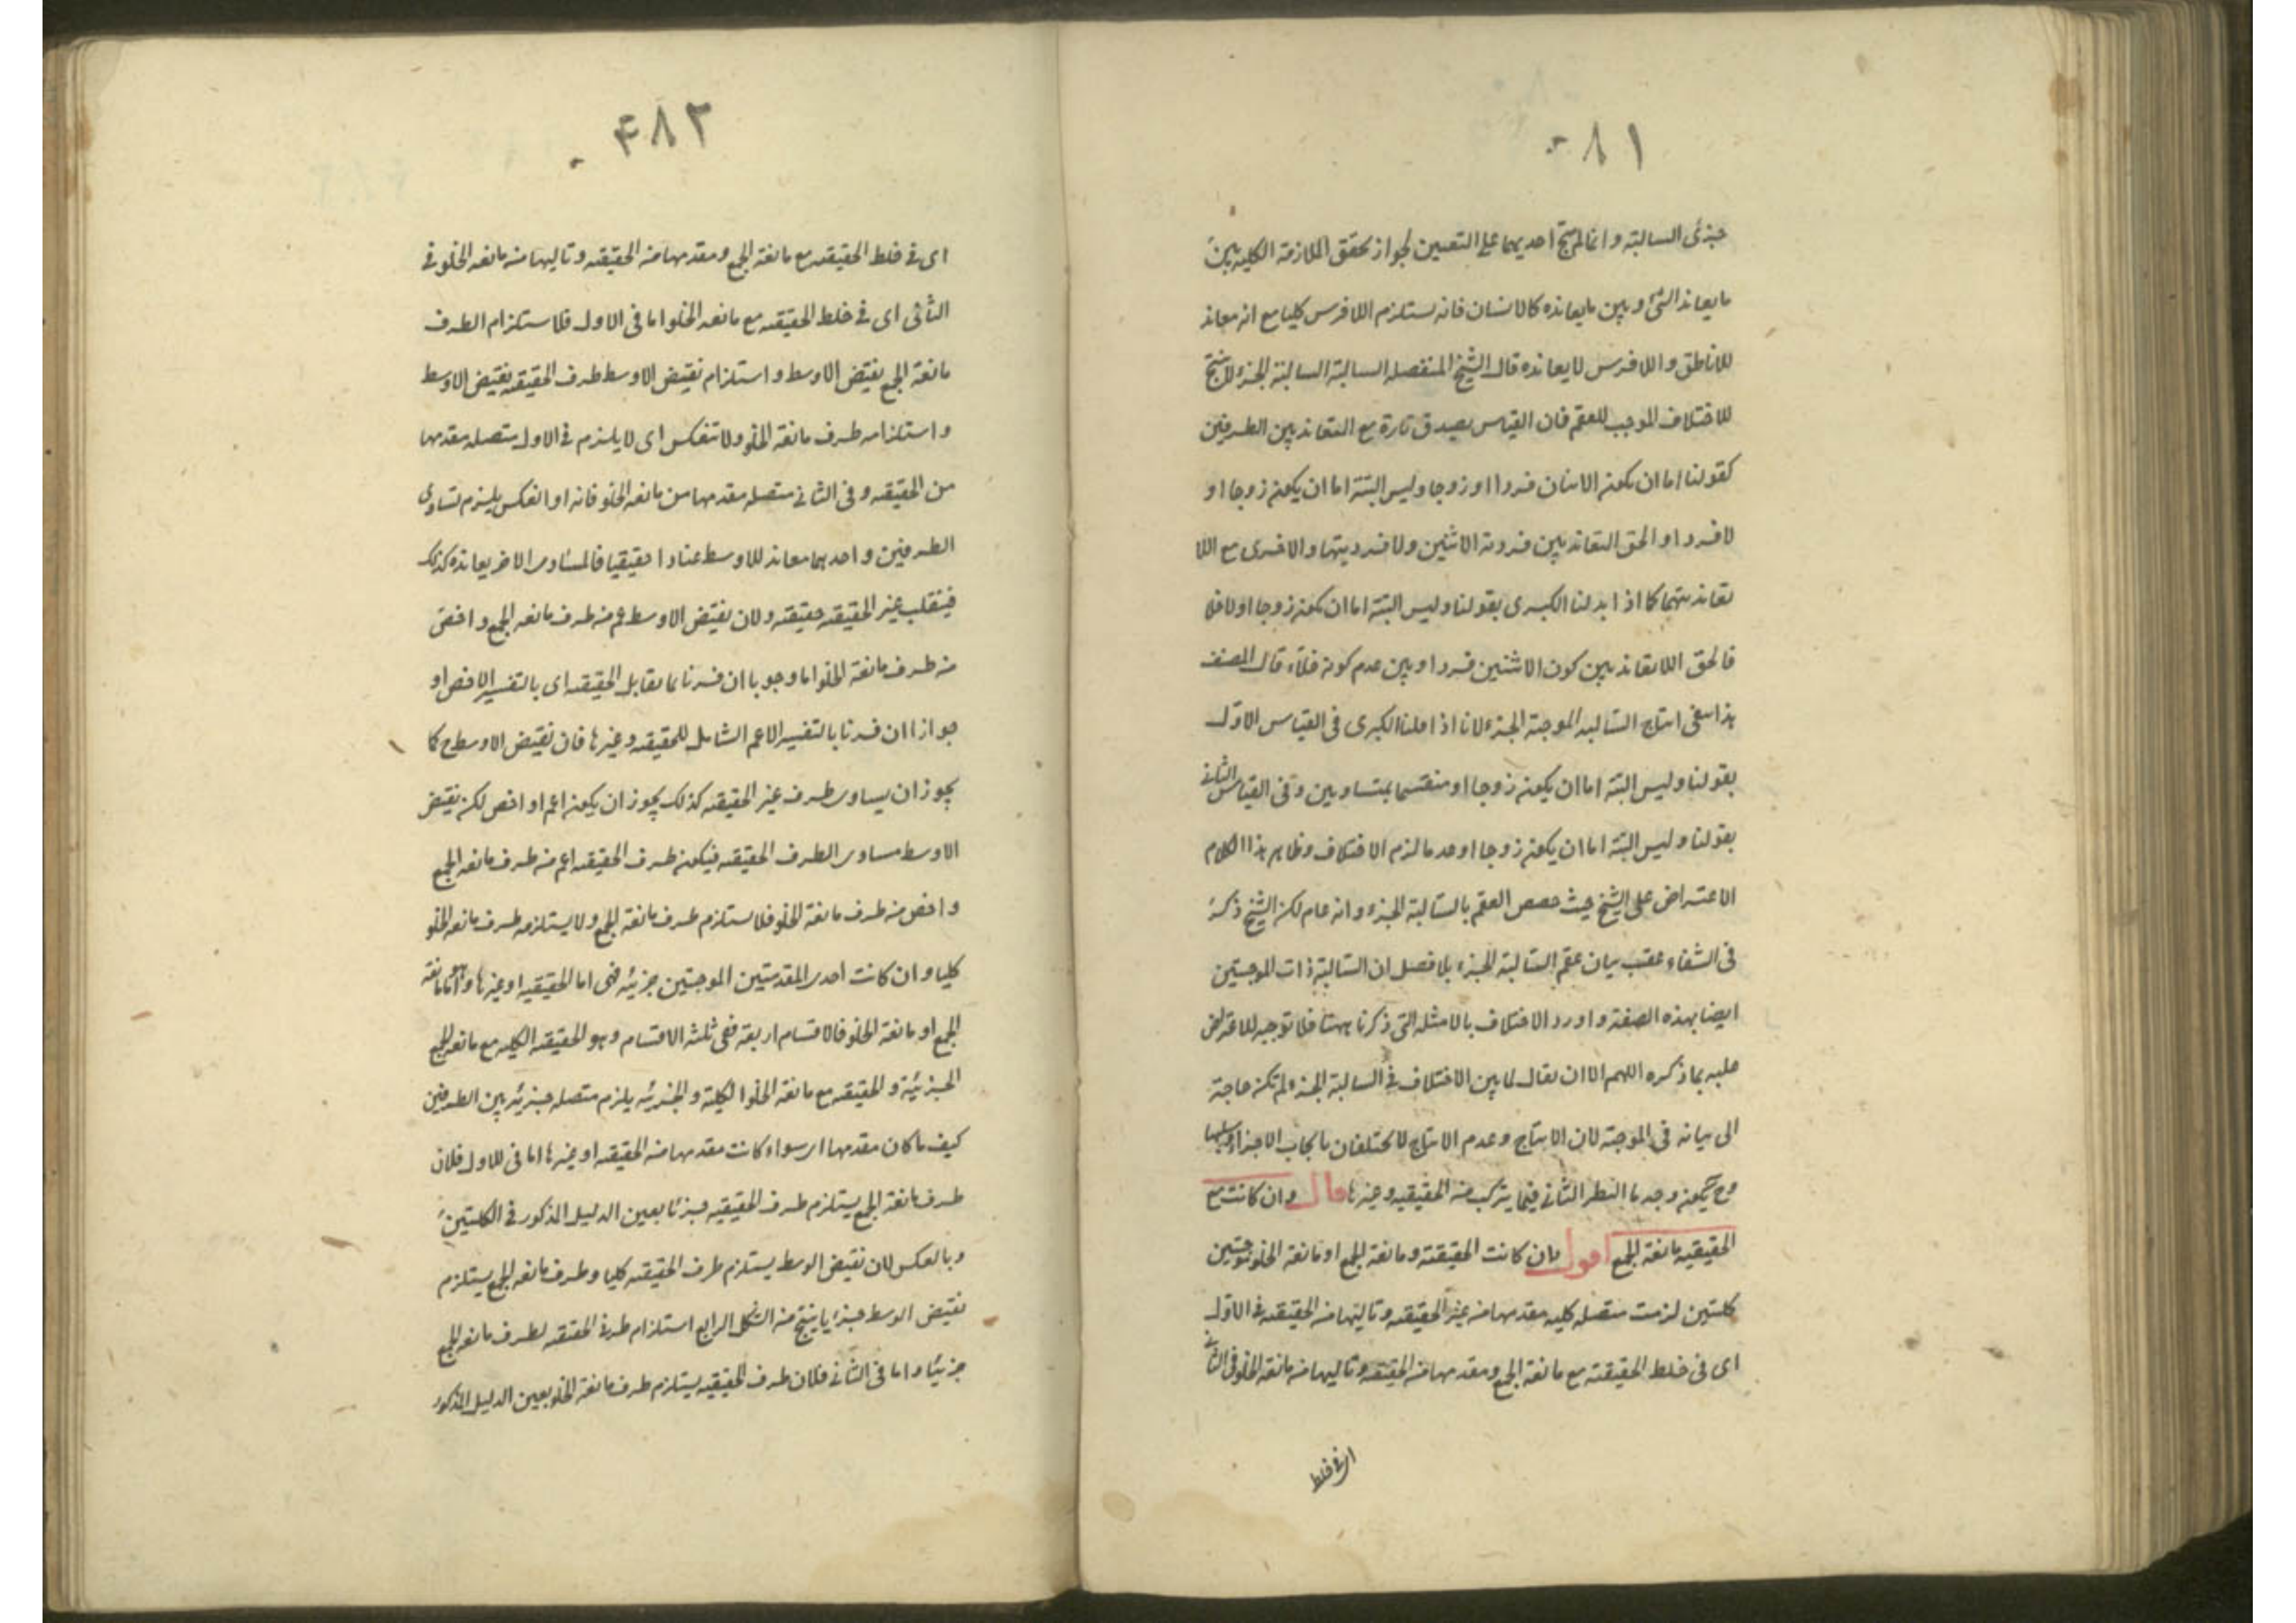 ٨١
جزئى السالبة وانما لم ينتج احديهما على التعيين لجواز تحقق الملازمة الكلية بين
ما يعاند الشئ وبين ما يعانده كالانسان فانه يستلزم اللافرس كليا مع انه معاند
للاناطق واللافرس لا يعانده قال الشيخ المنفصله السالبة السالبة الجزء لا ينتج
للاختلاف الموجب للعقم فان القياس يصدق تارة مع التعاند بين الطرفين
كقولنا اما ان يكون الاثنان فردا او زوجا وليس البتة اما ان يكون زوجا او
لا فردا والحق التعاند بين فردية الاثنين ولا فرديتها والاخرى مع اللا
تعاند بينهما كما اذا بدلنا الكبرى بقولنا وليس البتة اما ان يكون زوجا او لا خلا
فالحق اللاتعاند بين كون الاثنين فردا وبين عدم كونه خلاء قال المصنف
هذا ينفى انتاج السالبه الموجبة الجزء لانا اذا بدلنا الكبرى فى القياس الاول
بقولنا وليس البتة اما ان يكون زوجا او منقسما بمتساويين وفى القياس الثانى
بقولنا وليس البتة اما ان يكون زوجا او عدما لزم الاختلاف وظاهر هذا الكلام
الاعتراض على الشيخ حيث خصص العقم بالسالبة الجزء وانه عام لكن الشيخ ذكر
فى الشفاء عقيب بيان عقم السالبة الجزء بلا فصل ان السالبة ذات الموجبتين
ايضا بهذه الصفة واورد الاختلاف بالامثله التى ذكرنا ههنا فلا توجيه للاعتراض
عليه بما ذكره اللهم الا ان يقال لما بين الاختلاف فى السالبة الجزء لم تكن حاجة
الى بيانه فى الموجبة لان الانتاج وعدم الانتاج لا يختلفان بايجاب الاجزاء وسلبها
وح يكون وجه ما النظر الثانى فيما يتركب من الحقيقيه وغيرها قال وان كانت مع
الحقيقيه مانعة الجمع اقول فان كانت الحقيقتة ومانعة الجمع او مانعة الخلو موجبتين
كليتين لزمت متصله كليه مقدمها من غير الحقيقه وتاليها من الحقيقه فى الاول
اى فى خلط الحقيقتة مع مانعة الجمع ومقدمها من الحقيقه وتاليها من مانعة الخلو فى الثانى
اى فى خلط
٤٨٢
اى فى خلط الحقيقه مع مانعة الجمع ومقدمها من الحقيقه وتاليها من مانعه الخلو فى
الثانى اى فى خلط الحقيقه مع مانعه الخلو اما فى الاول فلاستلزام الطرف
مانعة الجمع نقيض الاوسط واستلزام نقيض الاوسط طرف الحقيقه نقيض الاوسط
واستلزامه طرف مانعة الخلو ولا تنعكس اى لا يلزم فى الاول متصله مقدمها
من الحقيقه وفى الثانى متصله مقدمها من مانعه الخلو فانه او انعكس يلزم تساوى
الطرفين واحدهما معاند للاوسط عنادا حقيقيا فالمساوى الاخر يعانده كذلك
فينقلب غير الحقيقه حقيقه ولان نقيض الاوسط اعم من طرف مانعه الجمع واخص
من طرف مانعة الخلو اما وجوبا ان فسرنا بما يقابل الحقيقه اى بالتفسير الاخص او
جوازا ان فسرنا بالتفسير الاعم الشامل للحقيقه وغيرها فان نقيض الاوسط ح كما
يجوز ان يساوى طرف غير الحقيقه كذلك يجوز ان يكون اعم او اخص لكن نقيض
الاوسط مساوى الطرف الحقيقه فيكون طرف الحقيقه اعم من طرف مانعه الجمع
واخص من طرف مانعة الخلو فلا يستلزم طرف مانعة الجمع ولا يستلزمه طرف مانعه الخلو
كليا وان كانت احدى المقدمتين الموجبتين جزئيه فهى اما الحقيقيه او غيرها وهو اما مانعة
الجمع او مانعة الخلو فالاقسام اربعة ففى ثلثه الاقسام وهو الحقيقه الكليه مع مانعه الجمع
الجزئية والحقيقه مع مانعة الخلو الكلية والجزئيه يلزم متصله جزئيه بين الطرفين
كيف ما كان مقدمها اى سواء كانت مقدمها من الحقيقه او غيرها اما فى الاول فلان
طرف مانعة الجمع يستلزم طرف الحقيقيه جزئا بعين الدليل المذكور فى الكليتين
وبالعكس لان نقيض الوسط يستلزم طرف الحقيقه كليا وطرف مانعه الجمع يستلزم
نقيض الوسط جزءيا ينتج من الشكل الرابع استلزام طرف الحقيقه لطرف مانعه الجمع
جزئيا واما فى الثانى فلان طرف الحقيقيه يستلزم طرف مانعة الخلو بعين الدليل المذكور